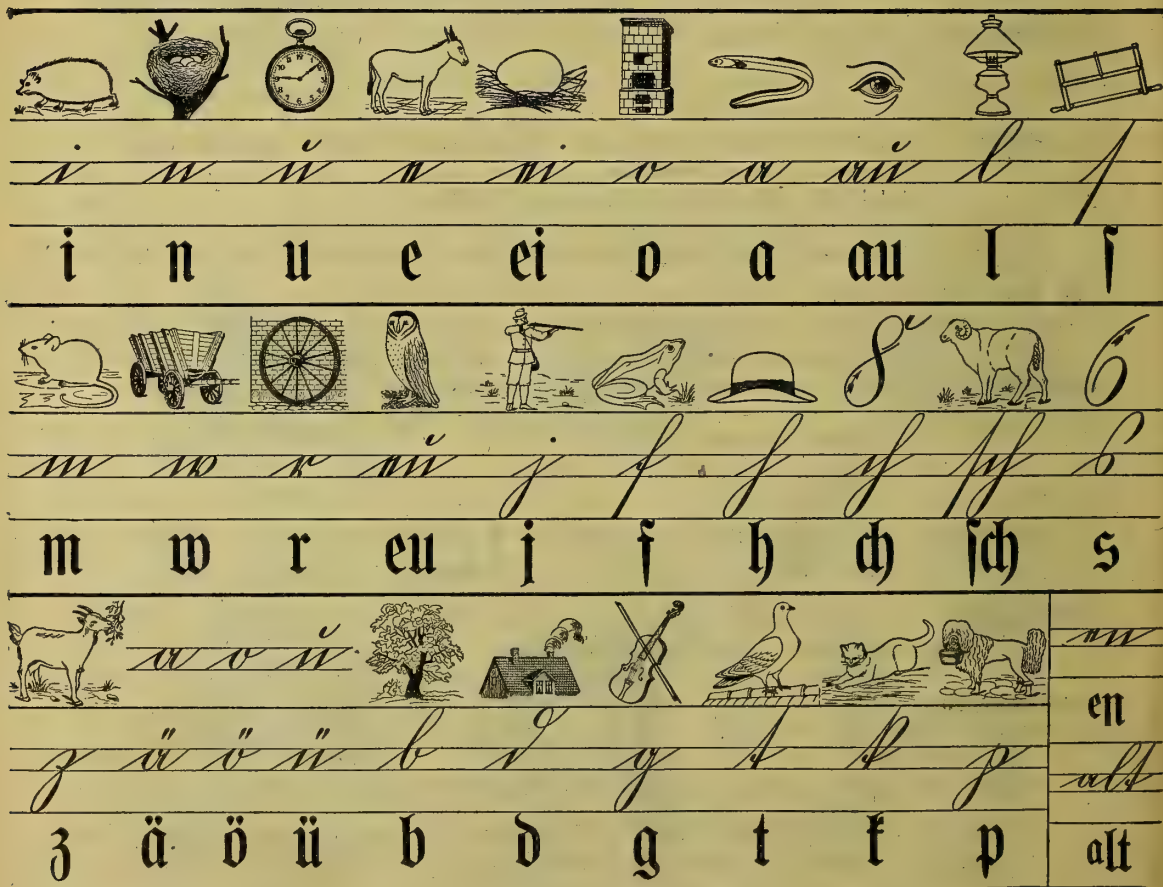 i n u e ei o a au l ſ
i n u e ei o a au l ſ
m w r eu j f h ch ſch s
m w r eu j f h ch ſch s
a o u
en
en
z ä ö ü b d g t k p
alt
z ä ö ü b d g t k p
alt